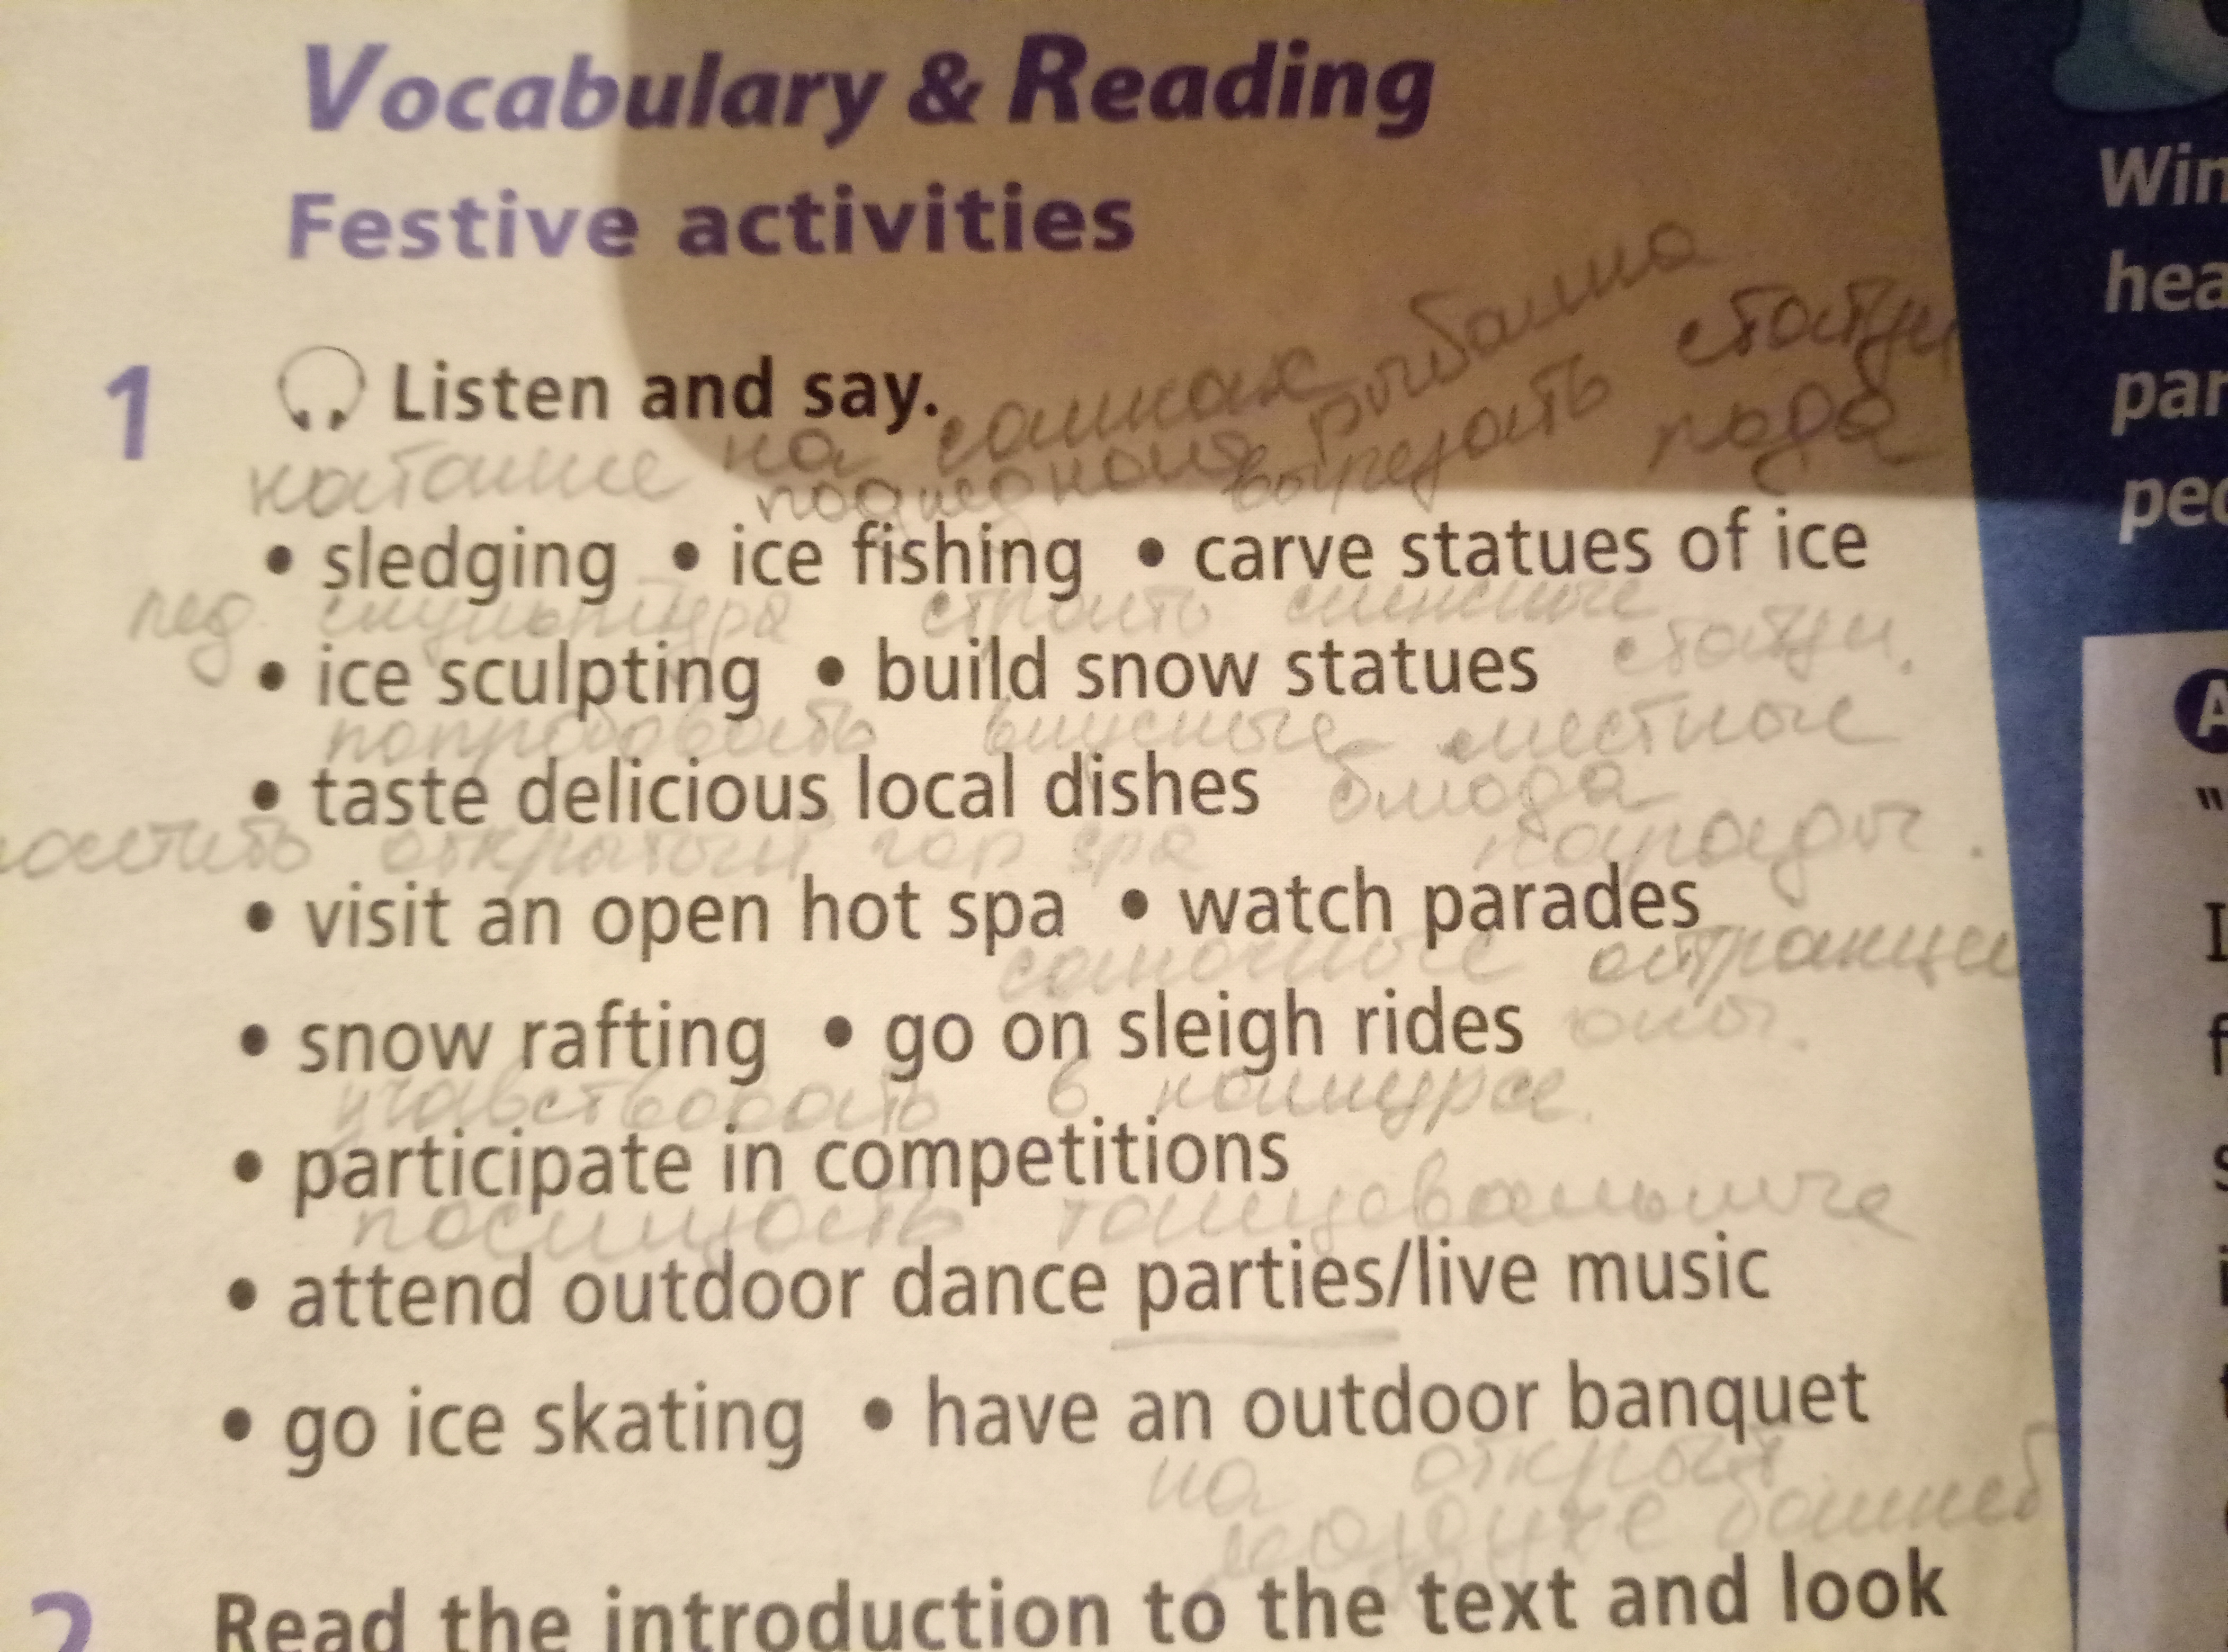 Vocabulary & Reading
Festive activities
1 Listen and say.
катание на санках рыбалка
подледная вырезать статуи
льда
• sledging • ice fishing • carve statues of ice
лед. скульптура строить снежные
статуи.
• ice sculpting • build snow statues
попробовать вкусные местные
• taste delicious local dishes блюда
открытый гор spa парады.
• visit an open hot spa • watch parades
• snow rafting • go on sleigh rides
в конкурсе.
• participate in competitions
танцевальные
• attend outdoor dance parties/live music
• go ice skating • have an outdoor banquet
на открыт
воздухе банкет
2 Read the introduction to the text and look
Win
hea
par
peo
A
"